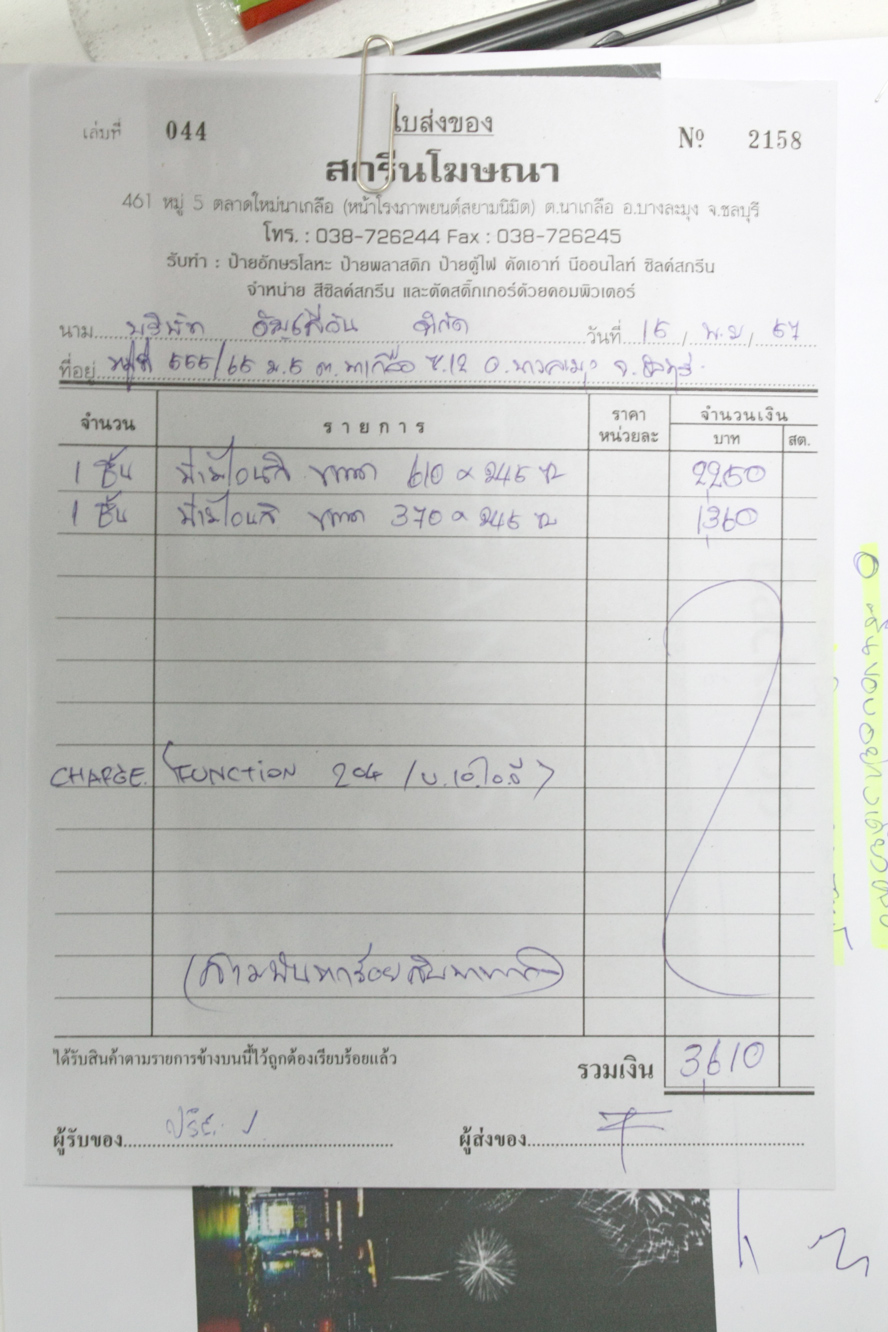 เล่มที่ 044 ใบส่งของ Nº 2158
สกรีนโฆษณา
461 หมู่ 5 ตลาดใหม่นาเกลือ (หน้าโรงภาพยนต์สยามนิมิต) ต.นาเกลือ อ.บางละมุง จ.ชลบุรี
โทร. : 038-726244 Fax : 038-726245
รับทำ : ป้ายอักษรโลหะ ป้ายพลาสติก ป้ายตู้ไฟ คัดเอาท์ นีออนไลท์ ซิลค์สกรีน
จำหน่าย สีซิลค์สกรีน และตัดสติ๊กเกอร์ด้วยคอมพิวเตอร์
นาม บริษัท จำกัด วันที่ 15 / พ.ย / 57
ที่อยู่ 555/65 ม.5 ต.นาเกลือ ซ.12 อ.บางละมุง จ.ชลบุรี
จำนวน รายการ ราคาหน่วยละ จำนวนเงิน
บาท สต.
1 ชิ้น ป้ายไวนิล ขนาด 610 x 245 ซม 2,250
1 ชิ้น ป้ายไวนิล ขนาด 370 x 245 ซม 1,360
CHARGE (FUNCTION 204 / บ.เอ.ไอ.ดี)
(สามพันหกร้อยสิบบาทถ้วน)
ได้รับสินค้าตามรายการข้างบนนี้ไว้ถูกต้องเรียบร้อยแล้ว
รวมเงิน 3,610
ผู้รับของ ผู้ส่งของ